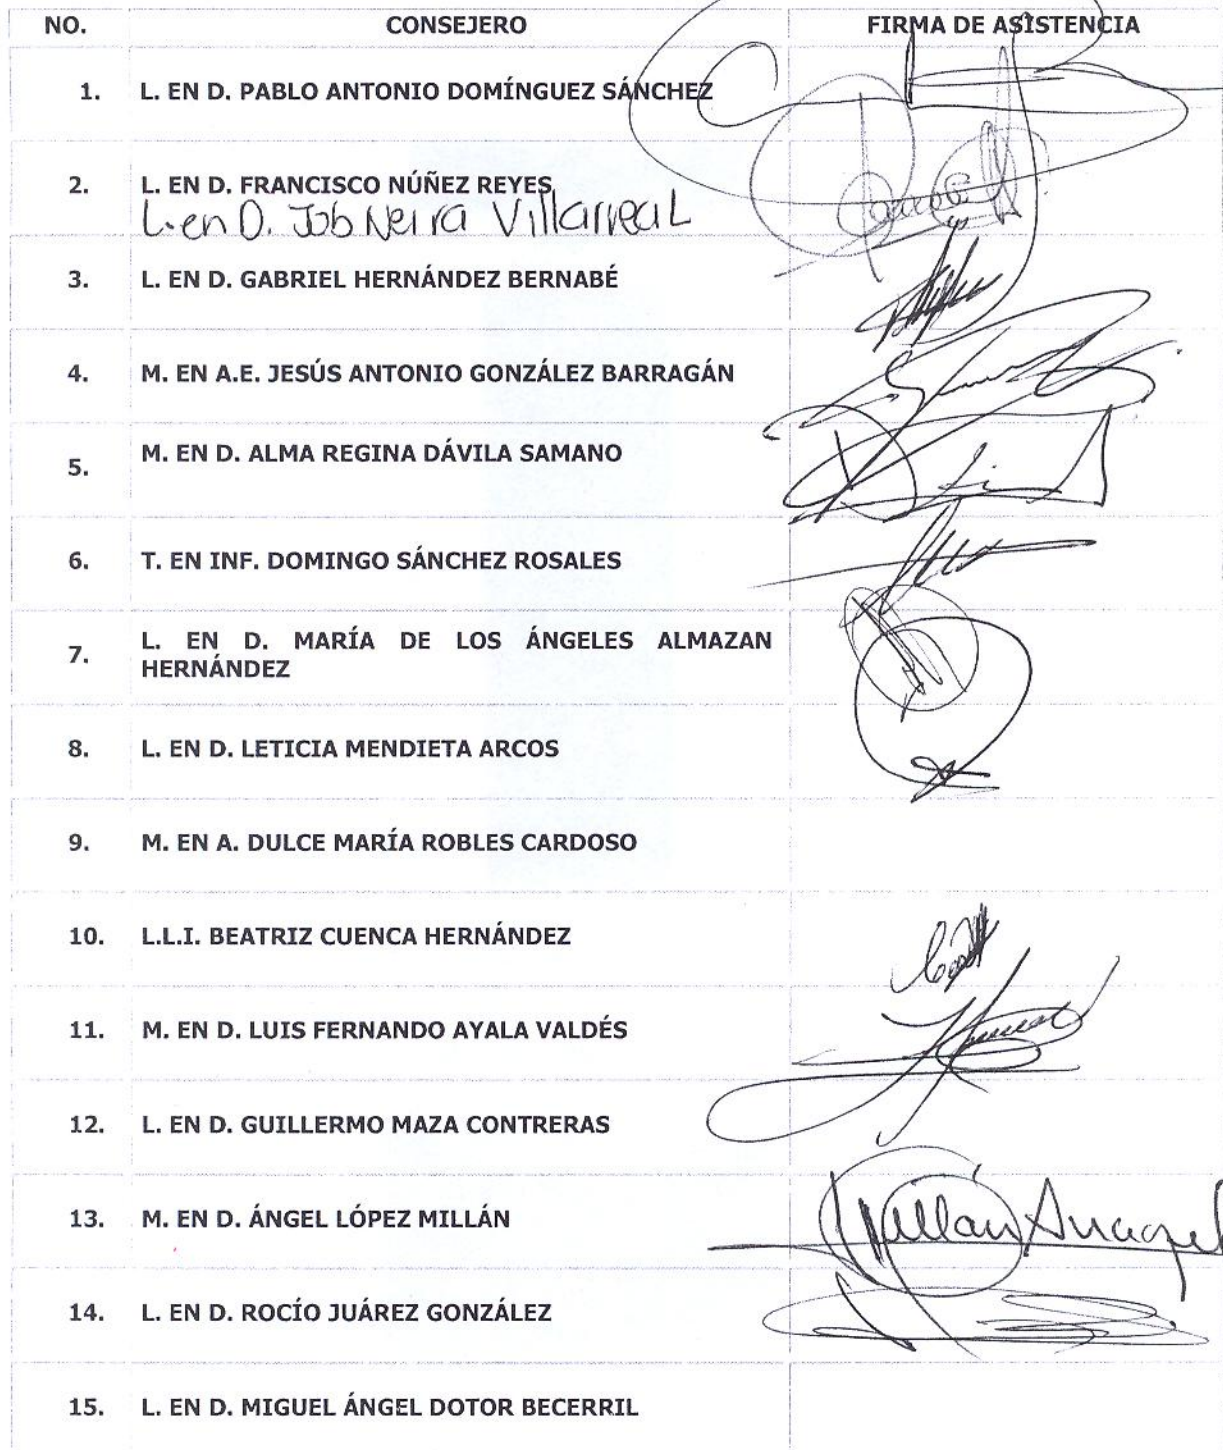 NO. CONSEJERO FIRMA DE ASISTENCIA
1. L. EN D. PABLO ANTONIO DOMÍNGUEZ SÁNCHEZ
2. L. EN D. FRANCISCO NÚÑEZ REYES
L. en D. Job Neira Villarreal
3. L. EN D. GABRIEL HERNÁNDEZ BERNABÉ
4. M. EN A.E. JESÚS ANTONIO GONZÁLEZ BARRAGÁN
5. M. EN D. ALMA REGINA DÁVILA SAMANO
6. T. EN INF. DOMINGO SÁNCHEZ ROSALES
7. L. EN D. MARÍA DE LOS ÁNGELES ALMAZAN
HERNÁNDEZ
8. L. EN D. LETICIA MENDIETA ARCOS
9. M. EN A. DULCE MARÍA ROBLES CARDOSO
10. L.L.I. BEATRIZ CUENCA HERNÁNDEZ
11. M. EN D. LUIS FERNANDO AYALA VALDÉS
12. L. EN D. GUILLERMO MAZA CONTRERAS
13. M. EN D. ÁNGEL LÓPEZ MILLÁN Millán
14. L. EN D. ROCÍO JUÁREZ GONZÁLEZ
15. L. EN D. MIGUEL ÁNGEL DOTOR BECERRIL